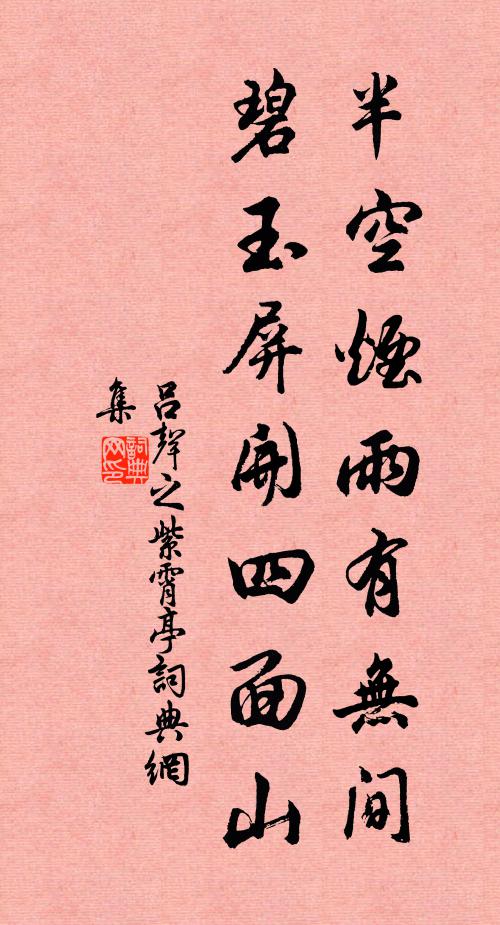 半空煙雨有無間
碧玉屏開四面山
呂聲之紫霄亭詞典網
集
詞典网印